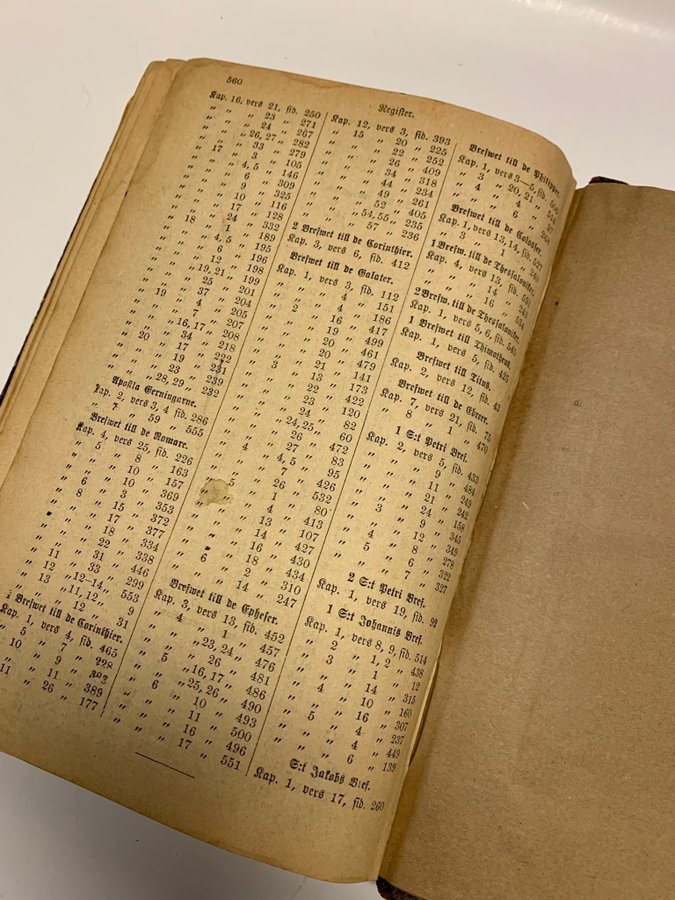 560
Register.
Kap. 16, vers 21, sid. 250
" " " 23 " 271
" " " 24 " 267
" " " 26, 27 " 282
" " " 33 " 279
" 17 " 3 " 105
" " " 4, 5 " 146
" " " 6 " 309
" " " 9 " 325
" " " 10 " 116
" " " 17 " 128
" " " 24 " 332
" 18 " 1 " 189
" " " 4, 5 " 195
" " " 6 " 196
" " " 12 " 198
" " " 19, 21 " 199
" " " 25 " 201
" " " 37 " 204
" 19 " 4 " 205
" " " 7 " 207
" " " 16, 17 " 208
" " " 34 " 218
" 20 " 17 " 222
" " " 19 " 231
" " " 23 " 239
" " " 28, 29 " 232
Apostla Gerningarne.
Kap. 2, vers 3, 4 sid. 286
" 7 " 59 " 555
Brefwet till de Romare.
Kap. 4, vers 25, sid. 226
" 5 " 8 " 163
" " " 10 " 157
" " " 10 " 369
" 6 " 3 " 353
" 8 " 15 " 372
" " " 17 " 377
" " " 18 " 334
" " " 22 " 338
" " " 31 " 446
" 11 " 33 " 299
" 12 " 12–14 " 553
" 13 " 11, 12 " 9
" " " 12 " 31
1 Brefwet till de Corinthier.
Kap. 1, vers 4, sid. 465
" 5 " 7 " 228
" 10 " 9 " 303
" " " 11 " 389
" 11 " 26 " 177
Kap. 12, vers 3, sid. 393
" 15 " 20 " 225
" " " 22 " 252
" " " 26 " 409
" " " 34 " 318
" " " 44 " 234
" " " 49 " 261
" " " 52 " 405
" " " 54, 55 " 235
" " " 57 " 236
2 Brefwet till de Corinthier.
Kap. 3, vers 6, sid. 412
Brefwet till de Galater.
Kap. 1, vers 3, sid. 112
" " " 4 " 151
" " " 4 " 186
" 2 " 16 " 417
" " " 19 " 499
" " " 20 " 461
" " " 20 " 479
" " " 21 " 141
" 3 " 13 " 173
" " " 22 " 422
" " " 23 " 120
" " " 24 " 82
" " " 24, 25 " 60
" " " 26 " 472
" " " 27 " 83
" 4 " 4, 5 " 95
" " " 7 " 426
" " " 26 " 532
" 5 " 1 " 80
" " " 4 " 413
" " " 13 " 107
" " " 14 " 427
" " " 16 " 430
" " " 18 " 434
" 6 " 2 " 310
" " " 14 " 247
Brefwet till de Epheser.
Kap. 3, vers 13, sid. 452
" 4 " 1 " 457
" " " 23, 24 " 476
" " " 26 " 481
" 5 " 16, 17 " 486
" " " 25, 26 " 490
" 6 " 10 " 493
" " " 11 " 500
" " " 16 " 496
" " " 17 " 551
Brefwet till de Philipper.
Kap. 1, vers 3–5, sid.
" 3 " 20, 21 "
" 4 " 4 "
" " " 6 "
Brefwet till de Colosser.
Kap. 1, vers 13, 14, sid. 527
" 3 " 1 " 246
1 Brefw. till de Thessaloniker.
Kap. 4, vers 13, sid. 531
" " " 14 " 243
" " " 16 " 534
2 Brefw. till de Thessaloniker.
Kap. 1, vers 5, 6, sid. 545
1 Brefwet till Thimotheus.
Kap. 1, vers 5, sid. 425
Brefwet till Titus.
Kap. 2, vers 12, sid. 43
Brefwet till de Ebreer.
Kap. 7, vers 21, sid. 75
" 8 " 1 " 470
1 S:t Petri Bref.
Kap. 2, vers 5, sid. 433
" " " 9 " 484
" " " 11 " 249
" " " 21 " 242
" " " 24 " 158
" 3 " 9 " 345
" " " 12 " 349
" 4 " 8 " 278
" 5 " 6 " 322
" " " 7 " 327
2 S:t Petri Bref.
Kap. 1, vers 19, sid. 92
1 S:t Johannis Bref.
Kap. 1, vers 8, 9, sid. 514
" 2 " 1, 2 " 438
" 3 " 1 " 12
" " " 14 " 315
" 4 " 10 " 160
" " " 16 " 307
" 5 " 4 " 237
" " " 4 " 449
" " " 6 " 139
S:t Jakobs Bref.
Kap. 1, vers 17, sid. 260